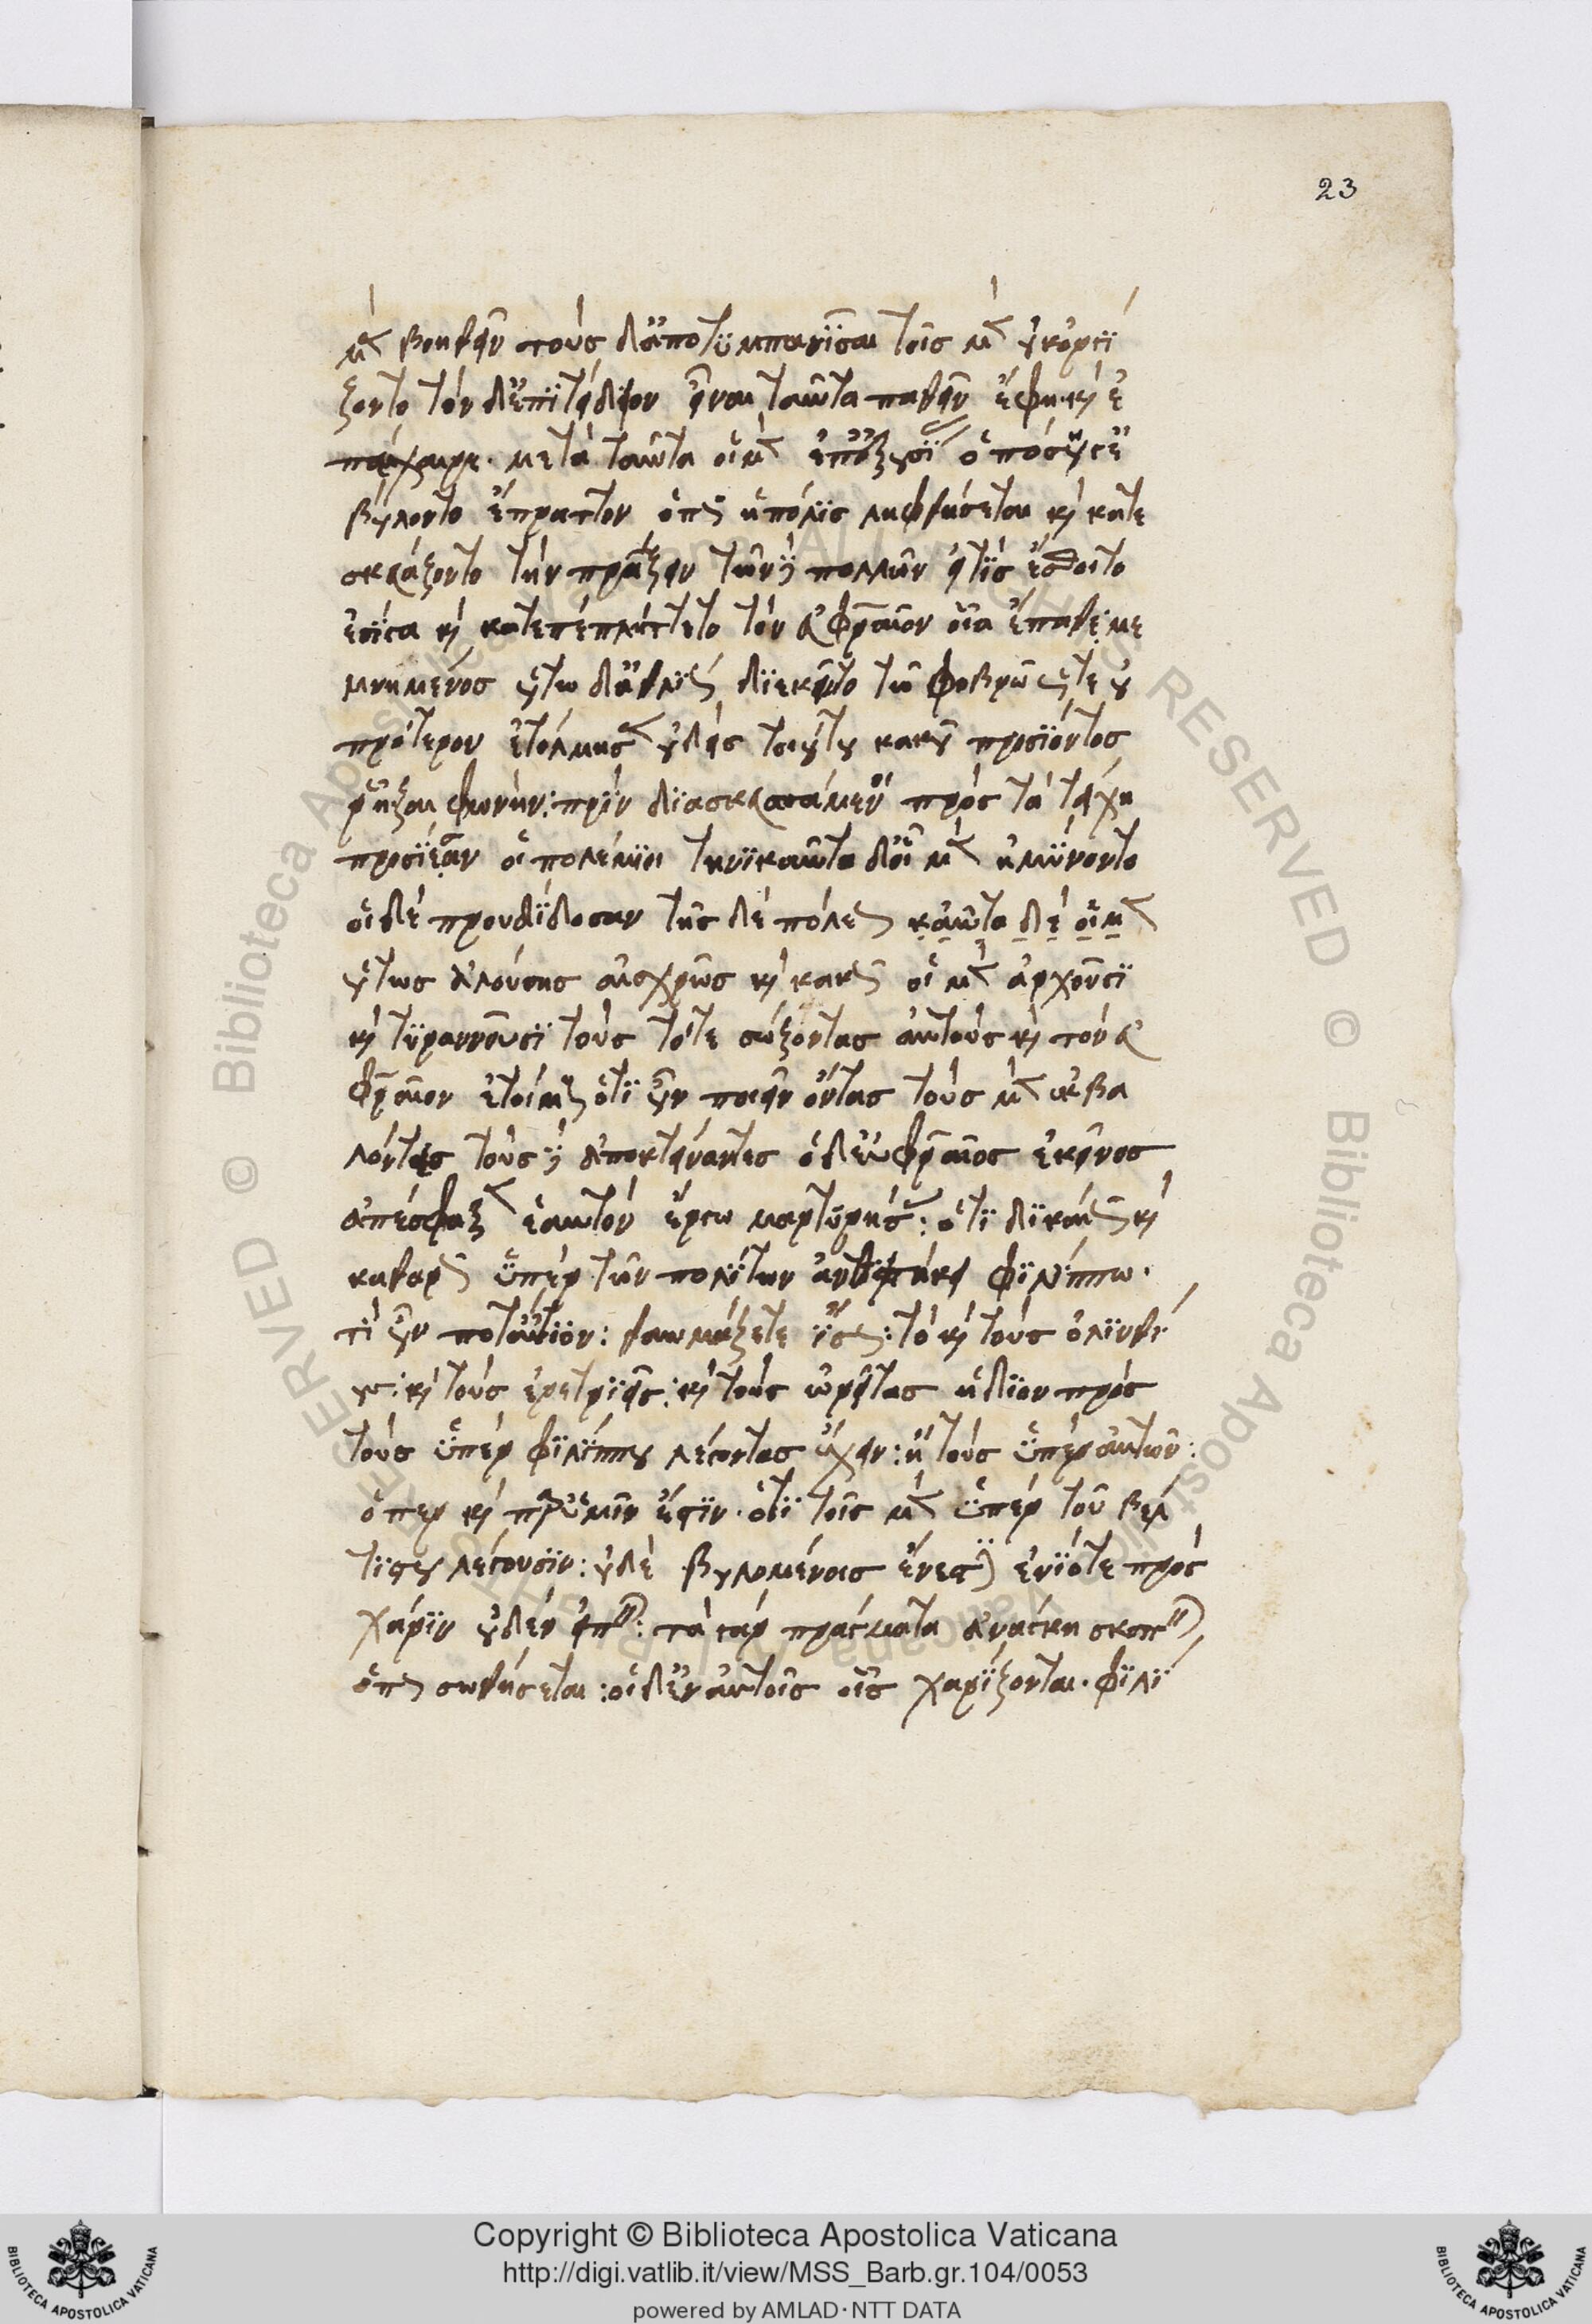 23
μὲν βοηθεῖν τοὺς δ' ἀποτϋμπανῖσαι τοῖς μὲν οὐκ ὠργΐ
ζοντο τὸν δ' ἐπιτήδειον εἶναι ταῦτα παθεῖν ἔφη καὶ ἐ
πέχαιρε. μετὰ ταῦτα οἱ μὲν ἐπ' ἐξουσΐας ὁπόσης
βούλοντο ἔπραττον ὅπως ἡ πόλις ληφθήσεται καὶ κατε
σκευάζοντο τὴν πρᾶξιν τῶν δὲ πολλῶν εἴ τις αἴσθοιτο
ἐσίγα καὶ κατεπέπληκτο τὸν εὐφραῖον οἷα ἔπαθε με
μνημένος οὕτω δ' ἀθλίως διέκειντο
πρότερον ἐτόλμησεν οὐδεὶς τοιούτου κακοῦ προσϊόντος
ῥῆξαι φωνήν: πρὶν διασκευασάμενοι πρὸς τὰ τείχη
προσῄεσαν οἱ πολέμϊοι τηνικαῦτα δ' οἱ μὲν ἠμύνοντο
οἱ δὲ προυδίδοσαν τῆς δὲ πόλεως κἀῦτα δὲ οἱ μὲν
οὕτως ἁλούσης αἰσχρῶς καὶ κακῶς οἱ μὲν ἄρχουσϊ
καὶ τυραννοῦσϊ τοὺς τότε σώζοντας αὐτοὺς καὶ τὸν εὐ
φραῖον ἑτοίμους ὁτϊοῦν ποιεῖν ὄντας τοὺς μὲν ἐκβα
λόντες τοὺς δὲ ἀποκτείναντες ὁ δ' εὐφραῖος ἐκεῖνος
ἀπέσφαξεν ἑαυτὸν ἔργω μαρτυρήσας: ὅτϊ δικαίως καὶ
καθαρῶς ὑπὲρ τῶν πολϊτῶν ἀνθειστήκει φϊλίππω.
τί οὖν ποτ' αἴτϊον: θαυμάζετε ἴσως: τὸ καὶ τοὺς ὀλϋνθί
ους: καὶ τοὺς ἐρετρϊεῖς: καὶ τοὺς ὠρείτας ἥδϊον πρὸς
τοὺς ὑπὲρ φϊλίππου λέγοντας ἔχειν: ἢ τοὺς ὑπὲρ αὐτῶν:
ὅπερ καὶ παρ' ὑμῖν ἐστϊν. ὅτϊ τοῖς μὲν ὑπὲρ τοῦ βελ
τϊστου λέγουσϊν: οὐδὲ βουλομένοις ἔνεστιν ἐνϊότε πρὸς
χάρϊν οὐδὲν εἰπεῖν: τὰ γὰρ πράγματα ἀνάγκη σκοπεῖν
ὅπως σωθήσεται: οἱ δ' ἐν αὐτοῖς οἷς χαρίζονται. φϊλΐ
Copyright © Biblioteca Apostolica Vaticana
http://digi.vatlib.it/view/MSS_Barb.gr.104/0053
powered by AMLAD·NTT DATA